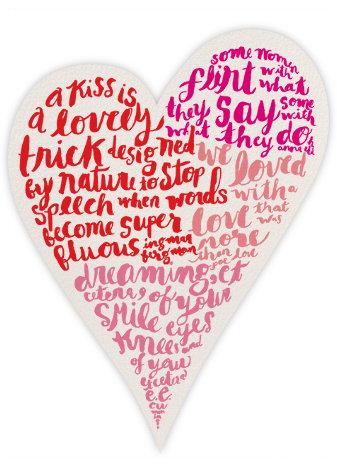 a kiss is
a lovely
trick designed
by nature to stop
speech when words
become super
fluous ingmar
bergman
some women
flirt with what
they say some
with
what they do
anna
we loved
with a
love that
was
more
than love
poe
dreaming, et
cetera, of your
smile eyes
knees and
of your
etcetera
e.e.
cu